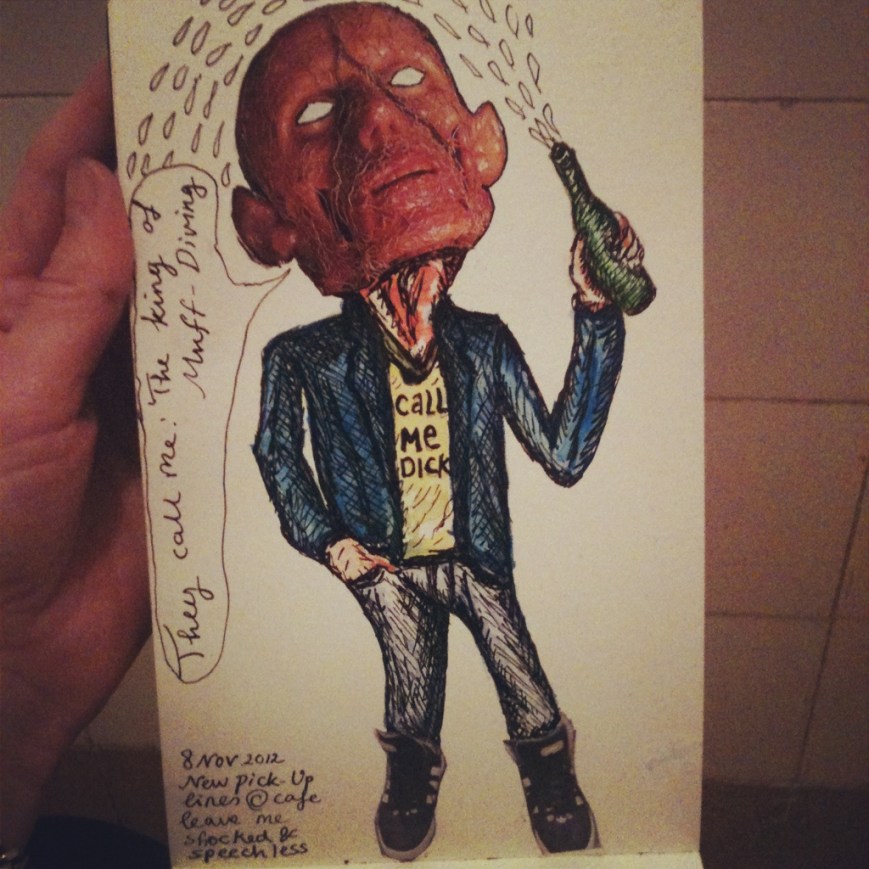 They call me: The king of
Muff-Diving
CALL
ME
DICK
8 Nov 2012
New pick-Up
lines @ cafe
leave me
shocked &
speechless